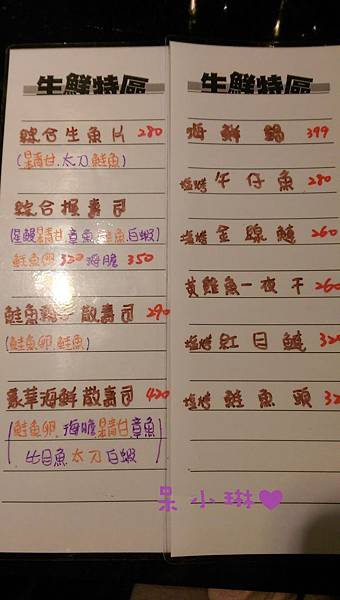 生鮮特區
綜合生魚片 280
(青甘.太刀.鮭魚)
綜合握壽司
(星鰻 青甘 章魚 鮭魚 白蝦)
鮭魚卵 320 海膽 350
鮭魚親子散壽司 290
(鮭魚卵.鮭魚)
豪華海鮮散壽司 420
(鮭魚卵.海膽 青甘 章魚
比目魚 太刀 白蝦)
生鮮特區
海鮮鍋 399
塩烤 午仔魚 280
塩烤 金線鰱 260
黃雞魚一夜干 260
塩烤 紅目鰱
塩烤 鮭魚頭
呆小琳♥